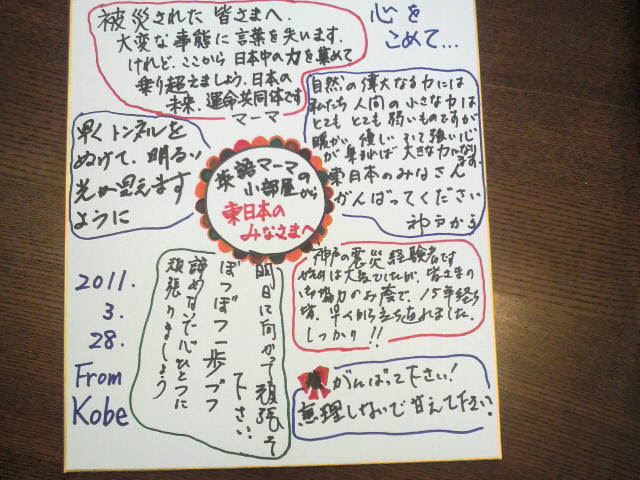 被災された皆さまへ.
大変な事態に言葉を失います.
けれど、ここから日本中の力を集めて
乗り超えましょう.日本の
未来、運命共同体です
マーマ
心を
こめて...
自然の偉大なる力には
私たち人間の小さな力は
とても とても弱いものですが
暖かい 優しい そして強い心
が集まれば 大きな力になります.
東日本のみなさん
がんばってください
神戸から
早くトンネルを
ぬけて、明るい
光が見えます
ように
英語マーマの
小部屋から
東日本の
みなさまへ
神戸の震災経験者です
は大変でしたが、皆さまの
協力のお蔭で、15年経ち
早くから立ち返れました.
しっかり!!
明日に向かって頑張って
下さい.
ぼつぼつ一歩ずつ
諦めないで心ひとつに
頑張りましょう
がんばって下さい!
無理しないで甘えて下さい.
2011.
3.
28.
From
Kobe